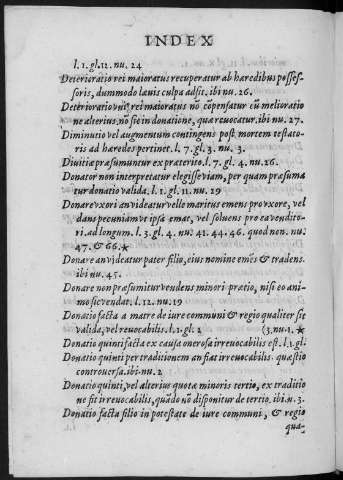 INDEX
l. 1. gl. 12. nu. 24
Deterioratio rei maioratus recuperatur ab hæredibus posses-
soris, dummodo lauis culpa adsit. ibi nu. 26.
Deterioratio vniꝰ rei maioratus nō cōpensatur cū melioratio
ne alterius. nō sic in donatione, quæ reuocatur. ibi nu. 27.
Diminutio vel augmentum contingens post mortem testato
ris ad hæredes pertinet. l. 7. gl. 3. nu. 3.
Diuitiæ præsumuntur ex præterito. l. 7. gl. 4. nu. 26.
Donator non interpretatur elegisse viam, per quam præsuma
tur donatio valida. l. 1. gl. 11. nu. 29
Donare vxori an videatur velle maritus emens pro vxore, vel
dans pecuniam vt ipsa emat, vel soluens pro ea vendito
ri. ad longum. l. 3. gl. 4. nu. 41. 44. 46. quod non. nu.
47. & 66. ★
Donare an videatur pater filio, eius nomine emēs & tradens.
ibi nu. 45.
Donare non præsumitur vendens minori prætio, nisi eo ani-
mo sic vendat. l. 12. nu. 19
Donatio facta a matre de iure communi & regio qualiter sit
valida, vel reuocabilis. l. 1. gl. 2 (3. nu. 1. ★
Donatio quinti facta ex causa onerosa irreuocabilis est. l. 1. gl.
Donatio quinti per traditionem an fiat irreuocabilis. quæstio
controuersa. ibi nu. 2
Donatio quinti, vel alterius quotæ minoris tertio, ex traditio
ne fit irreuocabilis, quādo nō disponitur de tertio. ibi nu. 3.
Donatio facta filio in potestate de iure communi, & regio
qua-